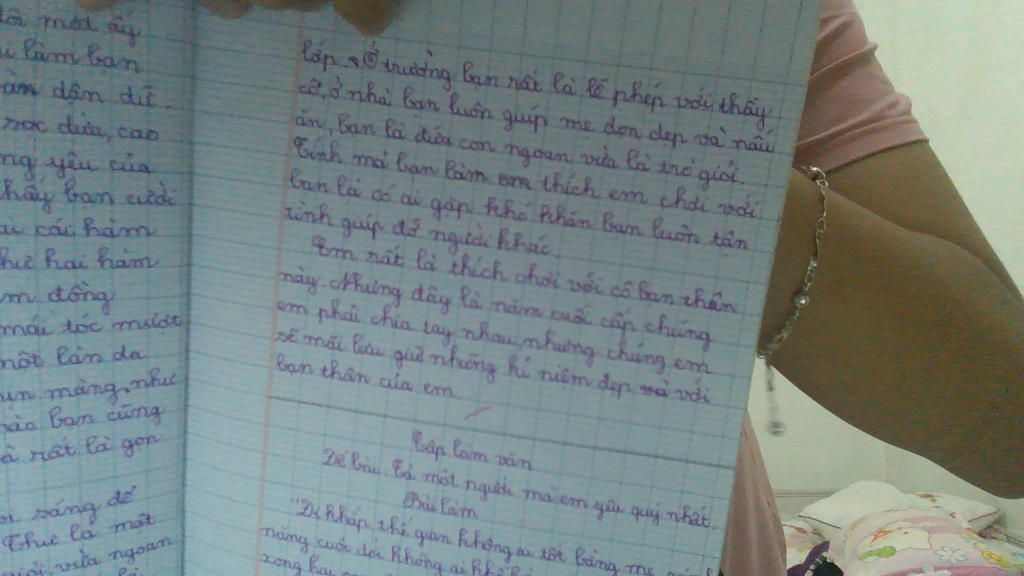 tôi mod ấy
i làm bạn
àn dận dữ.
sọc dừa, cao
ng yêu của
thấy bạn cười
ai cái hàm
thư hai hàm
m đồng
mái tóc mượt
một làn da
mịn màng, như
nào bạn cũng
à rất là gọn
sáng để
Thư là một
vừa ngoan
lớp. Ở trường bạn rất là lễ phép với thầy
cô, ở nhà bạn luôn giúp mẹ dọn dẹp và nấu
ăn, bạn là đứa con ngoan vừa là trò giỏi.
Tính mà bạn làm em thích em chơi với
bạn là có ai gặp khó khăn bạn luôn tận
tình giúp đỡ người khác.
Em rất là thích chơi với cô bạn thân
này. Nhưng đây là năm cuối cấp chúng
em phải chia tay nhau, nhưng chúng em
sẽ mãi lưu giữ những kỉ niệm đẹp và với
bạn thân của em
Tập làm văn
Đề bài: Tả một người mà em yêu quý nhất.
Bài làm
"Đi khắp thế gian không ai tốt bằng mẹ
nặng cuộc đời không ai khổ